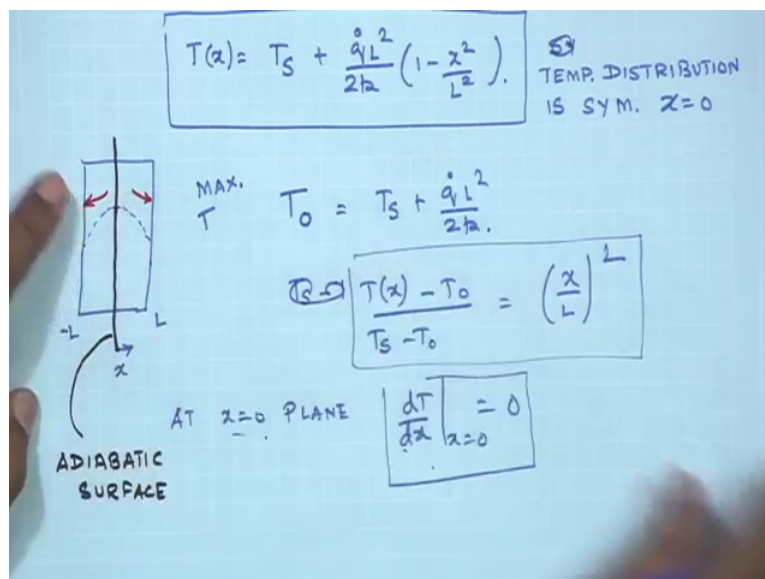 T(x) = T_S + q̇L²/2k (1 - x²/L²).
TEMP. DISTRIBUTION
IS SYM. x=0
MAX.
T
T_0 = T_S + q̇L²/2k.
T(x) - T_0 / T_S - T_0 = (x/L)²
-L
L
x
AT x=0 PLANE
dT/dx |x=0 = 0
ADIABATIC
SURFACE